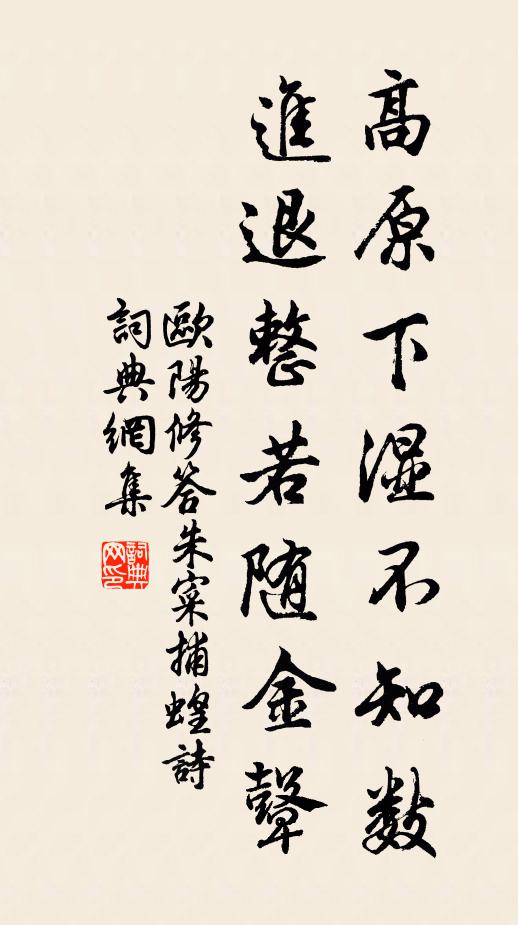 高原下湿不知数
進退整若随金鼙
歐陽修答朱寀捕蝗詩
詞典網集
詞典网印